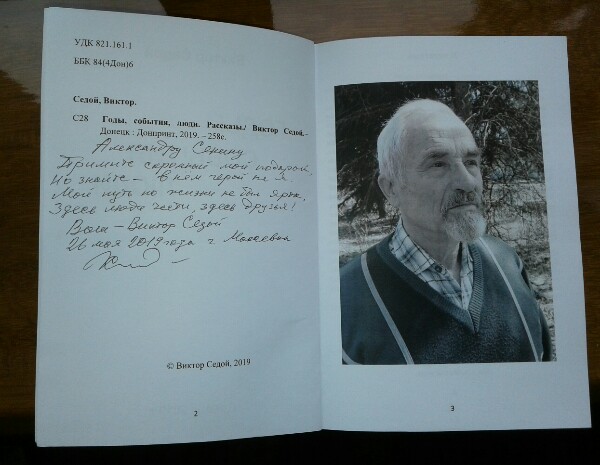 УДК 821.161.1
ББК 84(4Дон)6
Седой, Виктор.
С28 Годы, события, люди. Рассказы./ Виктор Седой.–
Донецк : Донпринт, 2019. – 258с.
Александру Сенину
Примите скромный мой подарок,
Но знайте – в нём герой не я
Мой путь по жизни не был ярок,
Здесь люди чести, здесь друзья!
Ваш – Виктор Седой
26 мая 2019 года г. Макеевка
© Виктор Седой, 2019
2
3